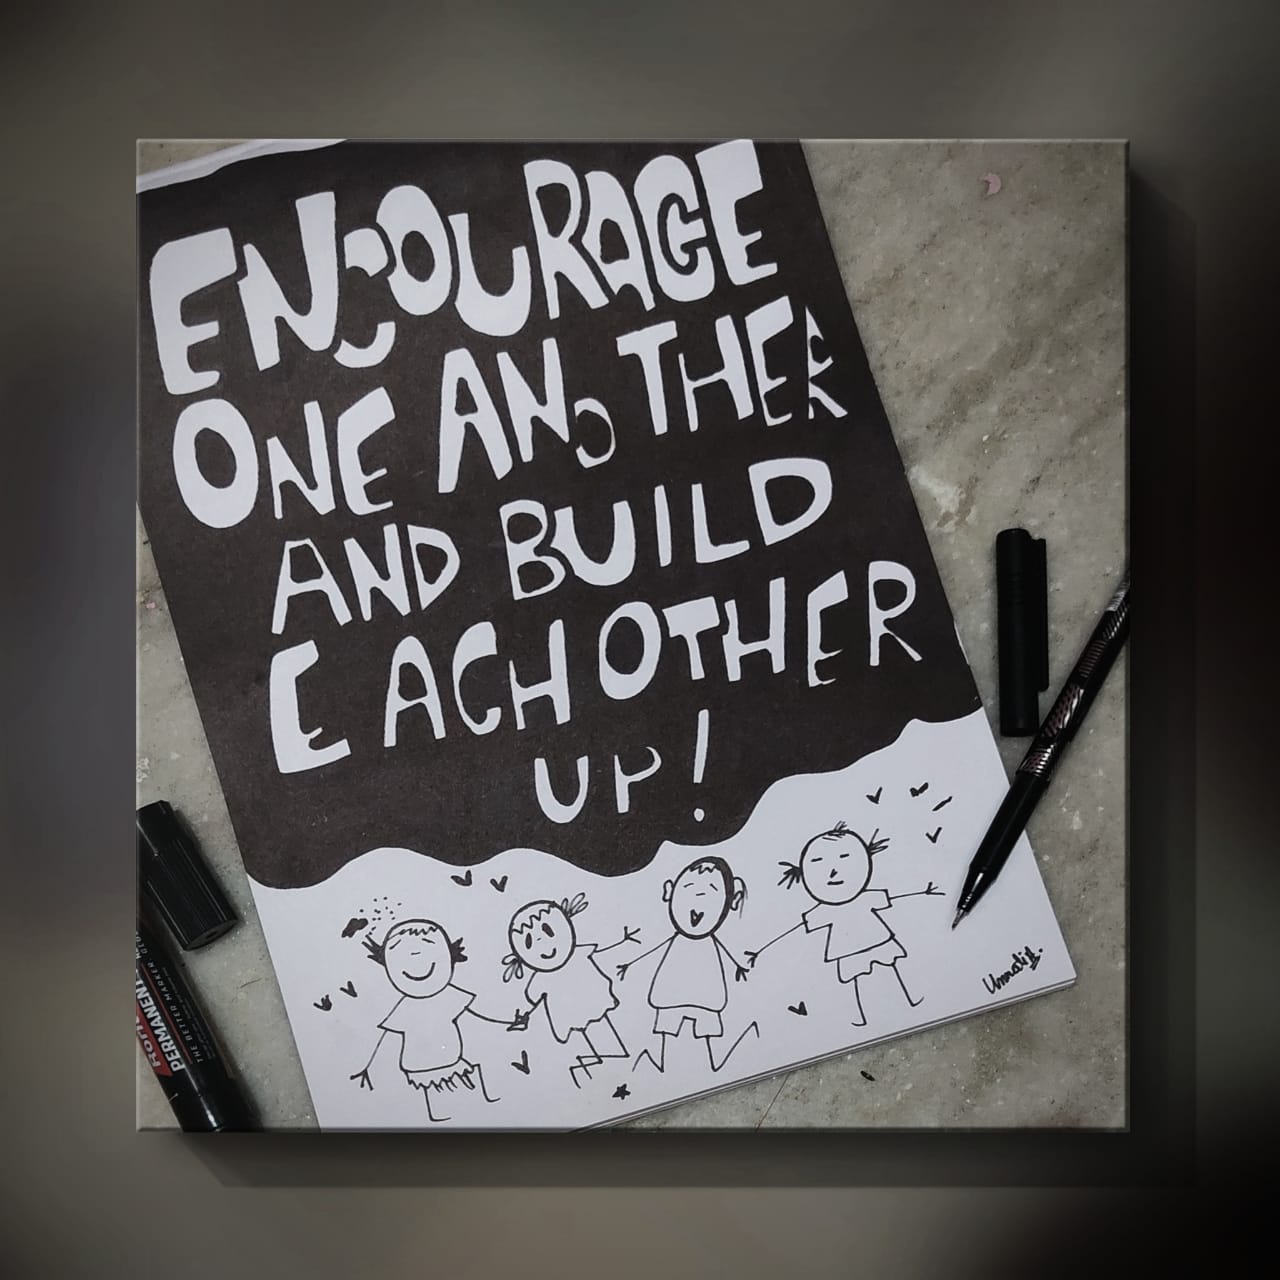 ENCOURAGE
ONE ANOTHER
AND BUILD
EACH OTHER
UP!
PERMANENT
THE BETTER MARKER